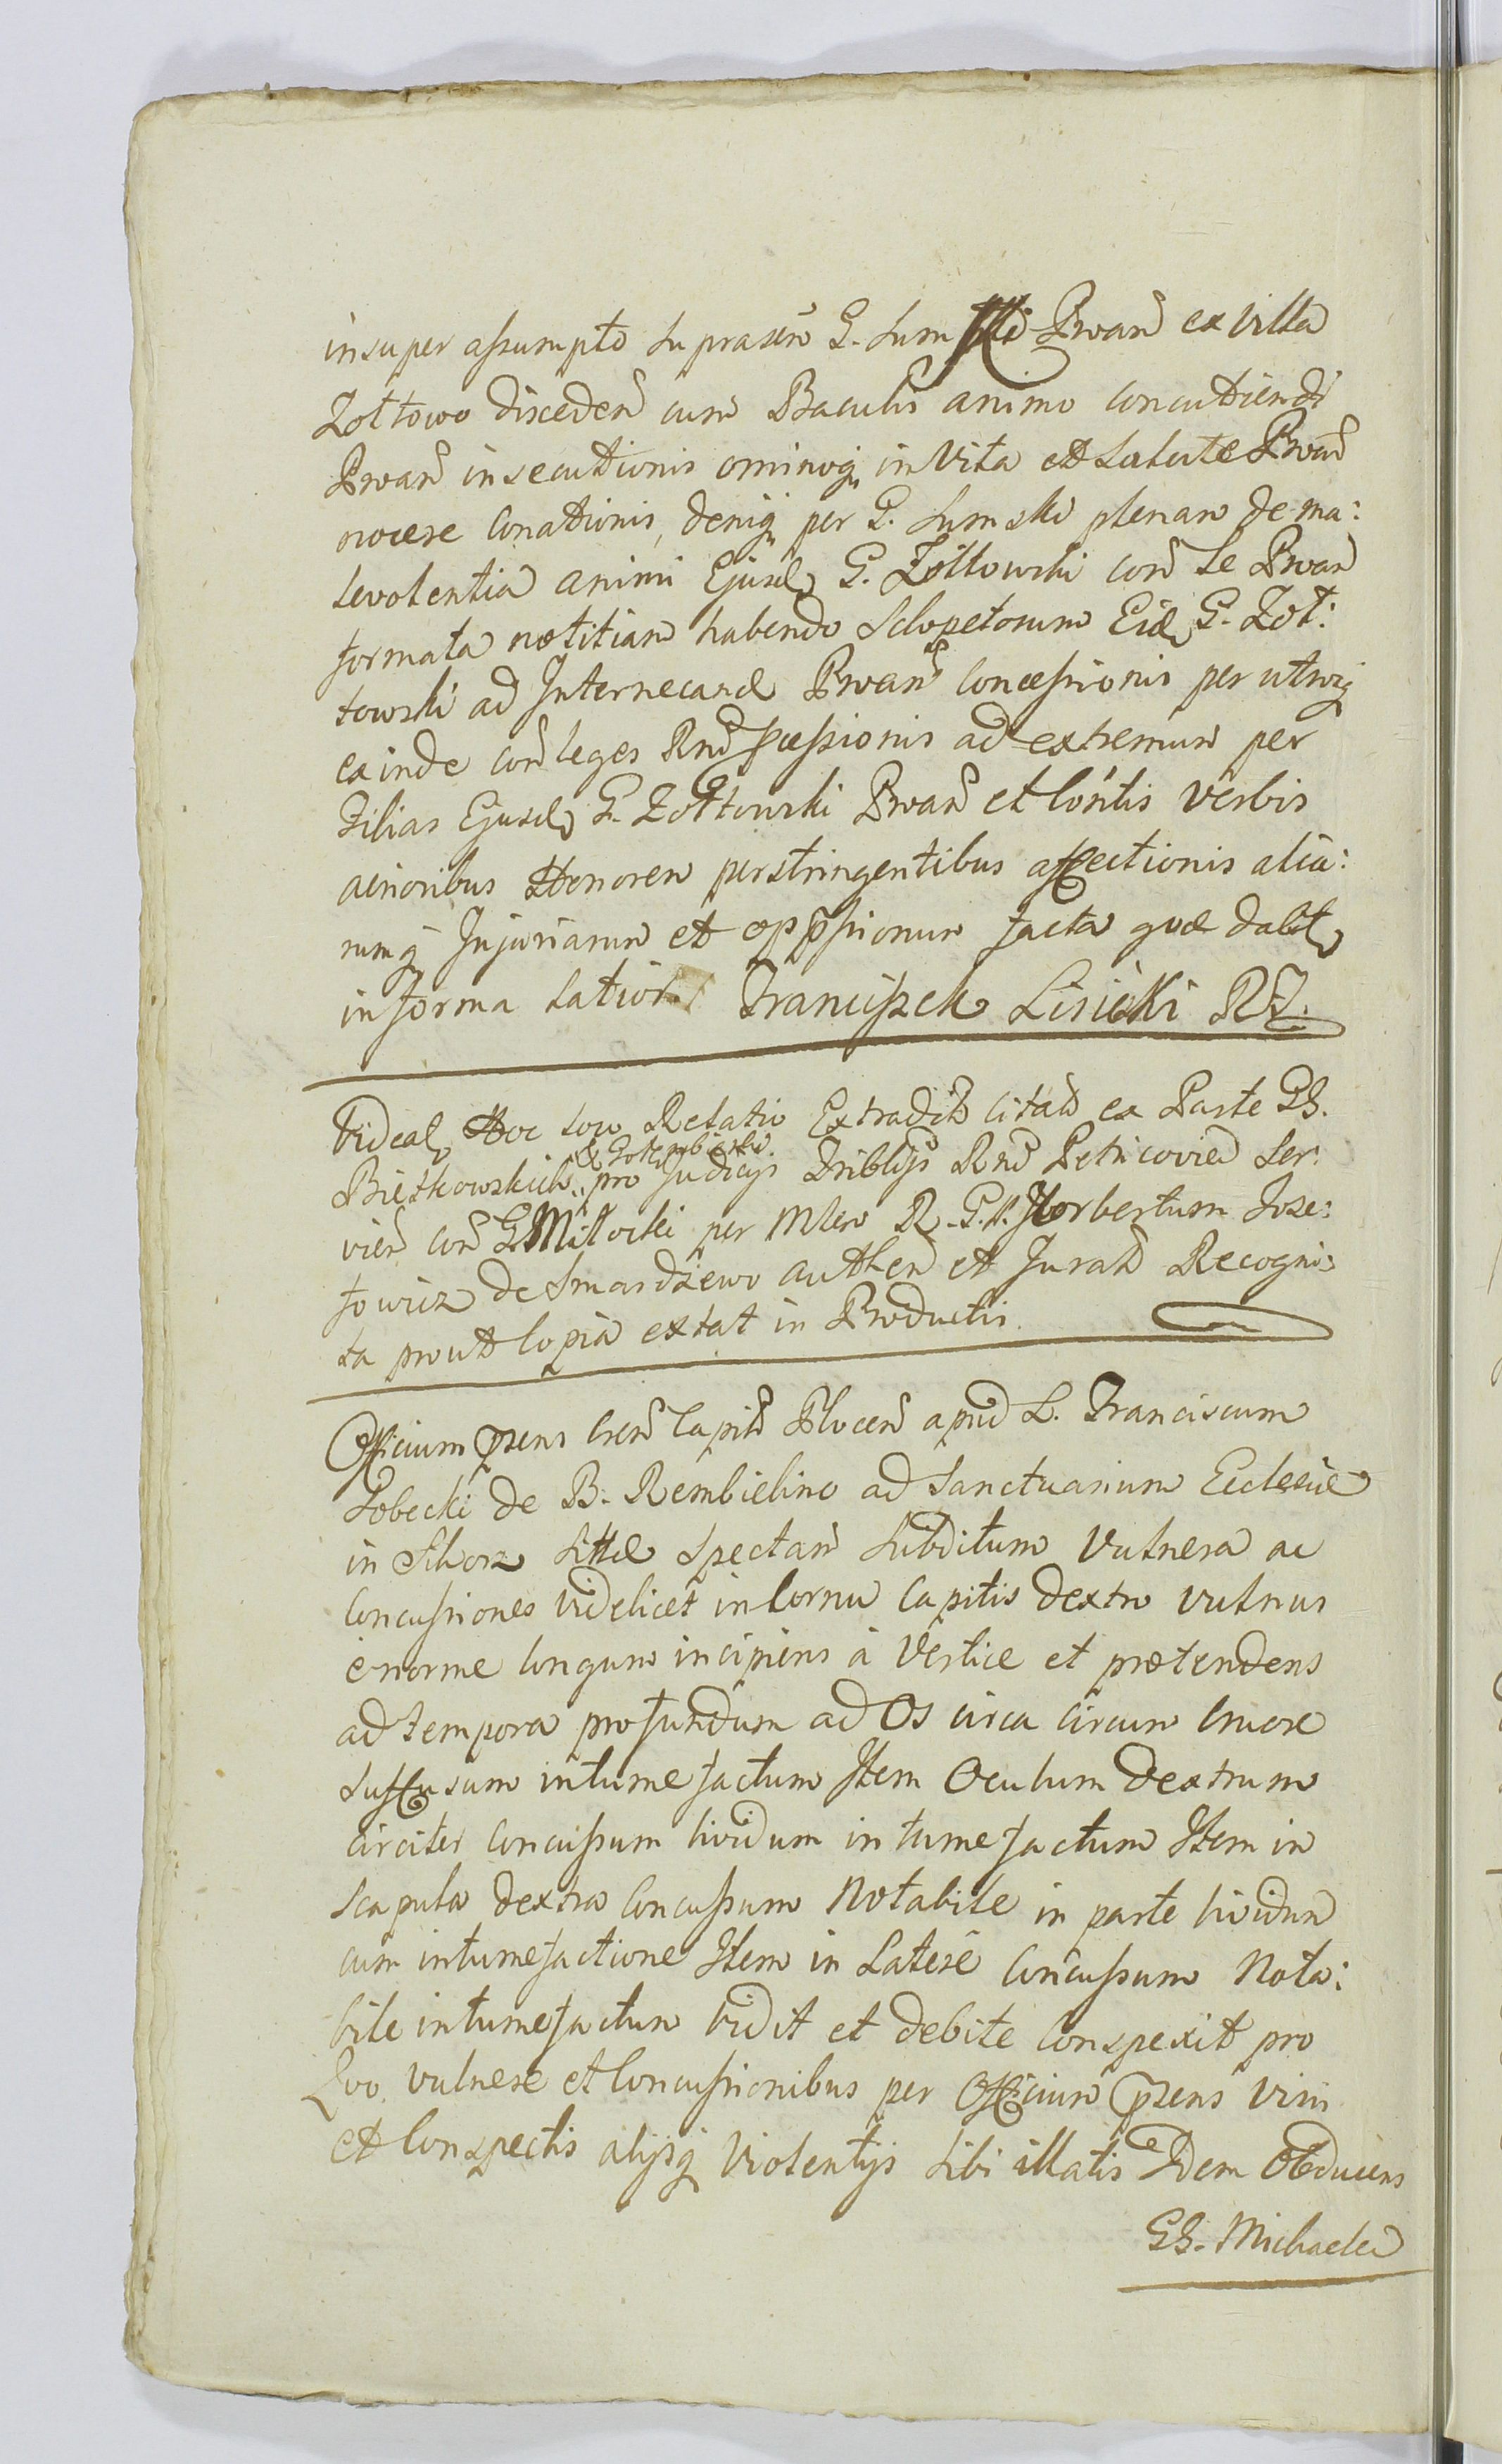 insuper assumpto suprascri G. Sumski Prnan ex Villa
Zołtowo discedend cum Baculis animo concutiendi
Prnan insecutionis ominoq in Vita et Salute Prnan
nocere Conationis, deniq per G. Sumski plenam de ma:
levolentia animi Ejusd G. Zółtowski con Se Prnan
formata notitiam habendo Sclopetorum Eid G. Zoł:
towski ad Internecand Prnan Concessionis per utrosq
exinde con leges Rni pcessionis ad extremum per
Filias Ejusd G. Zółtowski Prnan et Cortis verbis
acrioribus Honorem perstringentibus affectionis alia:
rumq Injuriarum et oppssionum facta quæ dabt
in forma latiori Franciszek Lisicki RZ.
Videat Hoc loco Relatio Extradit Citaõ ex Parte GG.
Bieżkowskich & Gołembiewski pro Judicijs Triblijs Rni Petricovien Ser:
vien con G. Miłocki per Mlem R. G. P. Norbertum Joze:
fowicz de Smardzewo authen et Jurat Recogni:
ta prout Copia extat in Productis.
Officium Psens Cren Capit Plocen apud L. Franciscum
Sobecki de B. Rembielino ad Sanctuarium Ecclesiæ
in Sikorz Sitte Spectan Subditum Vulnera ac
Concussiones videlicet in Cornu Capitis dextro vulnus
enorme longum incipiens à Vertice et protendens
ad tempora profundum ad Os circa circum cruore
suffusum intumefactum Item Oculum dextrum
circiter Concussum lividum intumefactum Item in
Scapula dextra Concussum Notabile in parte lividum
cum intumefactione Item in Latere Concussum Nota:
bile intumefactum vidit et debite Conspexit pro
Quo vulnere et Concussionibus per Officium Psens visis
et Conspectis alijsq Violentijs Sibi illatis Idem Obducens
GG. Michaele